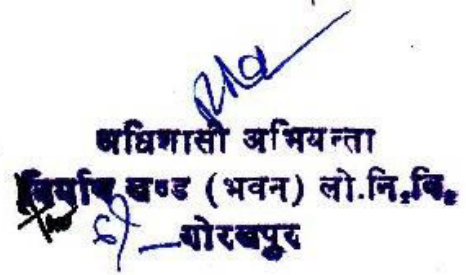 अधिशासी अभियन्ता
निर्माण खण्ड (भवन) लो.नि.वि.
गोरखपुर